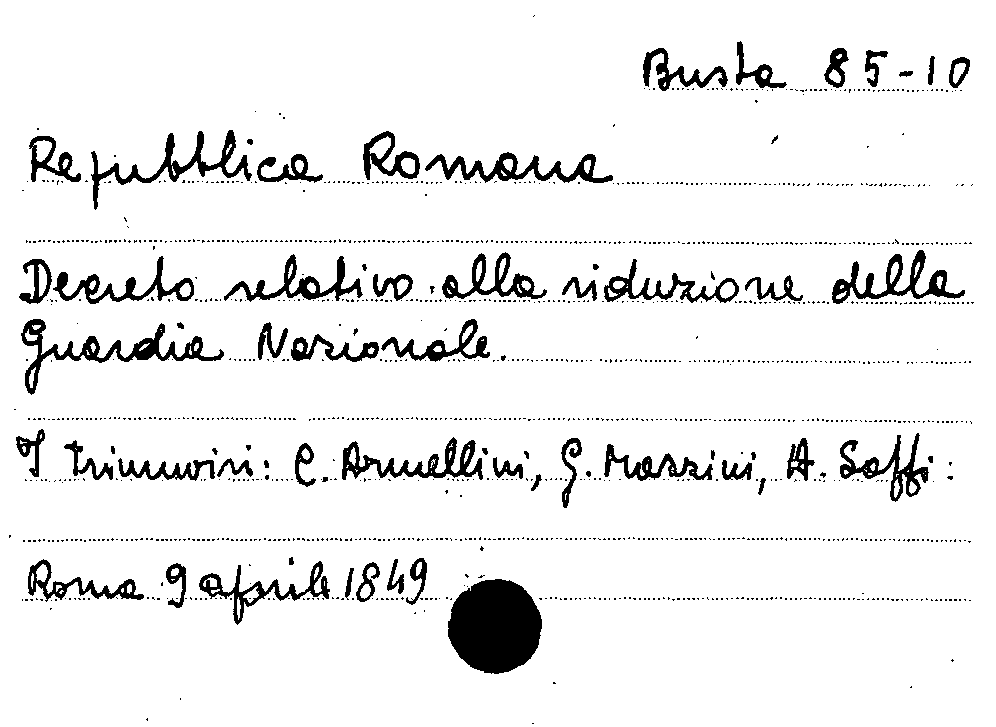 Busta 85-10
Repubblica Romana
Decreto relativo alla riduzione della
Guardia Nazionale.
I triumviri: C. Armellini, G. Mazzini, A. Saffi:
Roma 9 aprile 1849